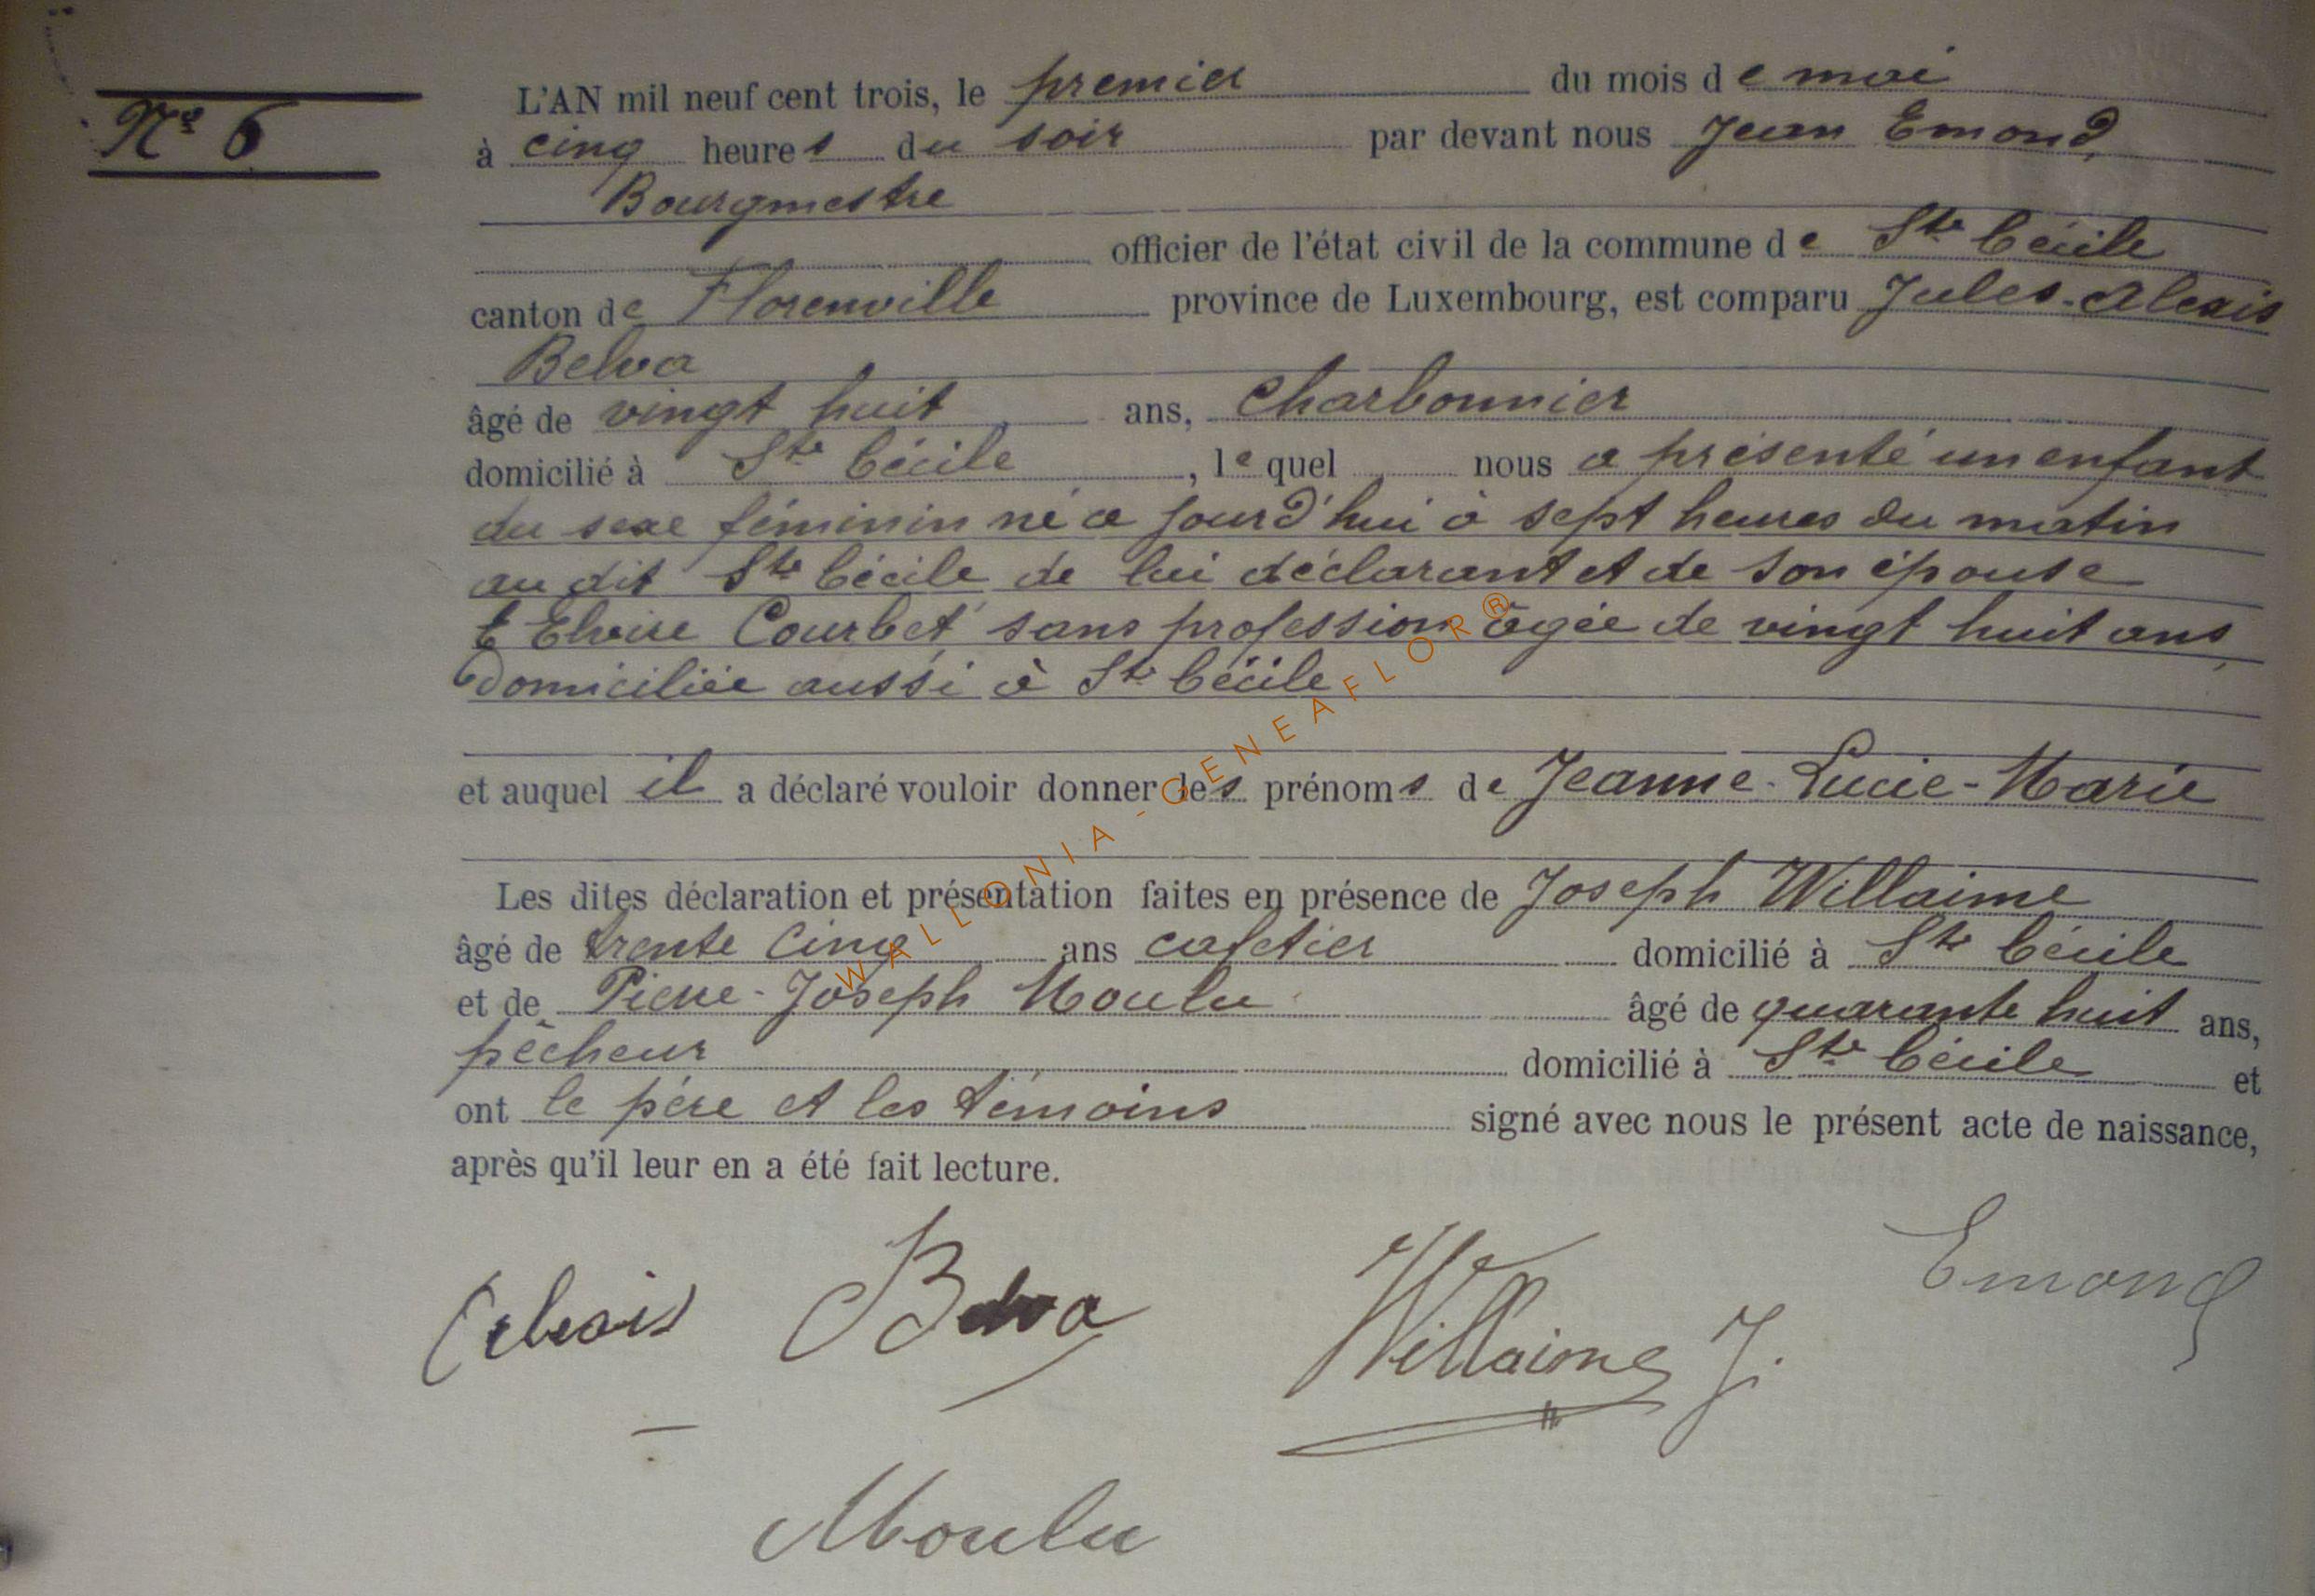 Nº 6
L'AN mil neuf cent trois, le premier du mois de mai
à cinq heures du soir par devant nous Jean Emond,
Bourgmestre
officier de l'état civil de la commune de Ste Cécile
canton de Florenville province de Luxembourg, est comparu Jules-Alexis
Belva
âgé de vingt huit ans, charbonnier
domicilié à Ste Cécile, lequel nous a présenté un enfant
du sexe féminin né ce jourd'hui à sept heures du matin
au dit Ste Cécile de lui déclarant et de son épouse
Elvire Courbet, sans profession âgée de vingt huit ans,
domiciliée aussi à Ste Cécile
et auquel il a déclaré vouloir donner les prénoms de Jeanne-Lucie-Marie
Les dites déclaration et présentation faites en présence de Joseph Willaime
âgé de trente cinq ans cafetier domicilié à Ste Cécile
et de Pierre-Joseph Moulu âgé de quarante huit ans,
pêcheur domicilié à Ste Cécile et
ont le père et les témoins signé avec nous le présent acte de naissance,
après qu'il leur en a été fait lecture.
Alexis Belva Willaime J. Emond
Moulu
WALLONIA - GENEAFLOR®